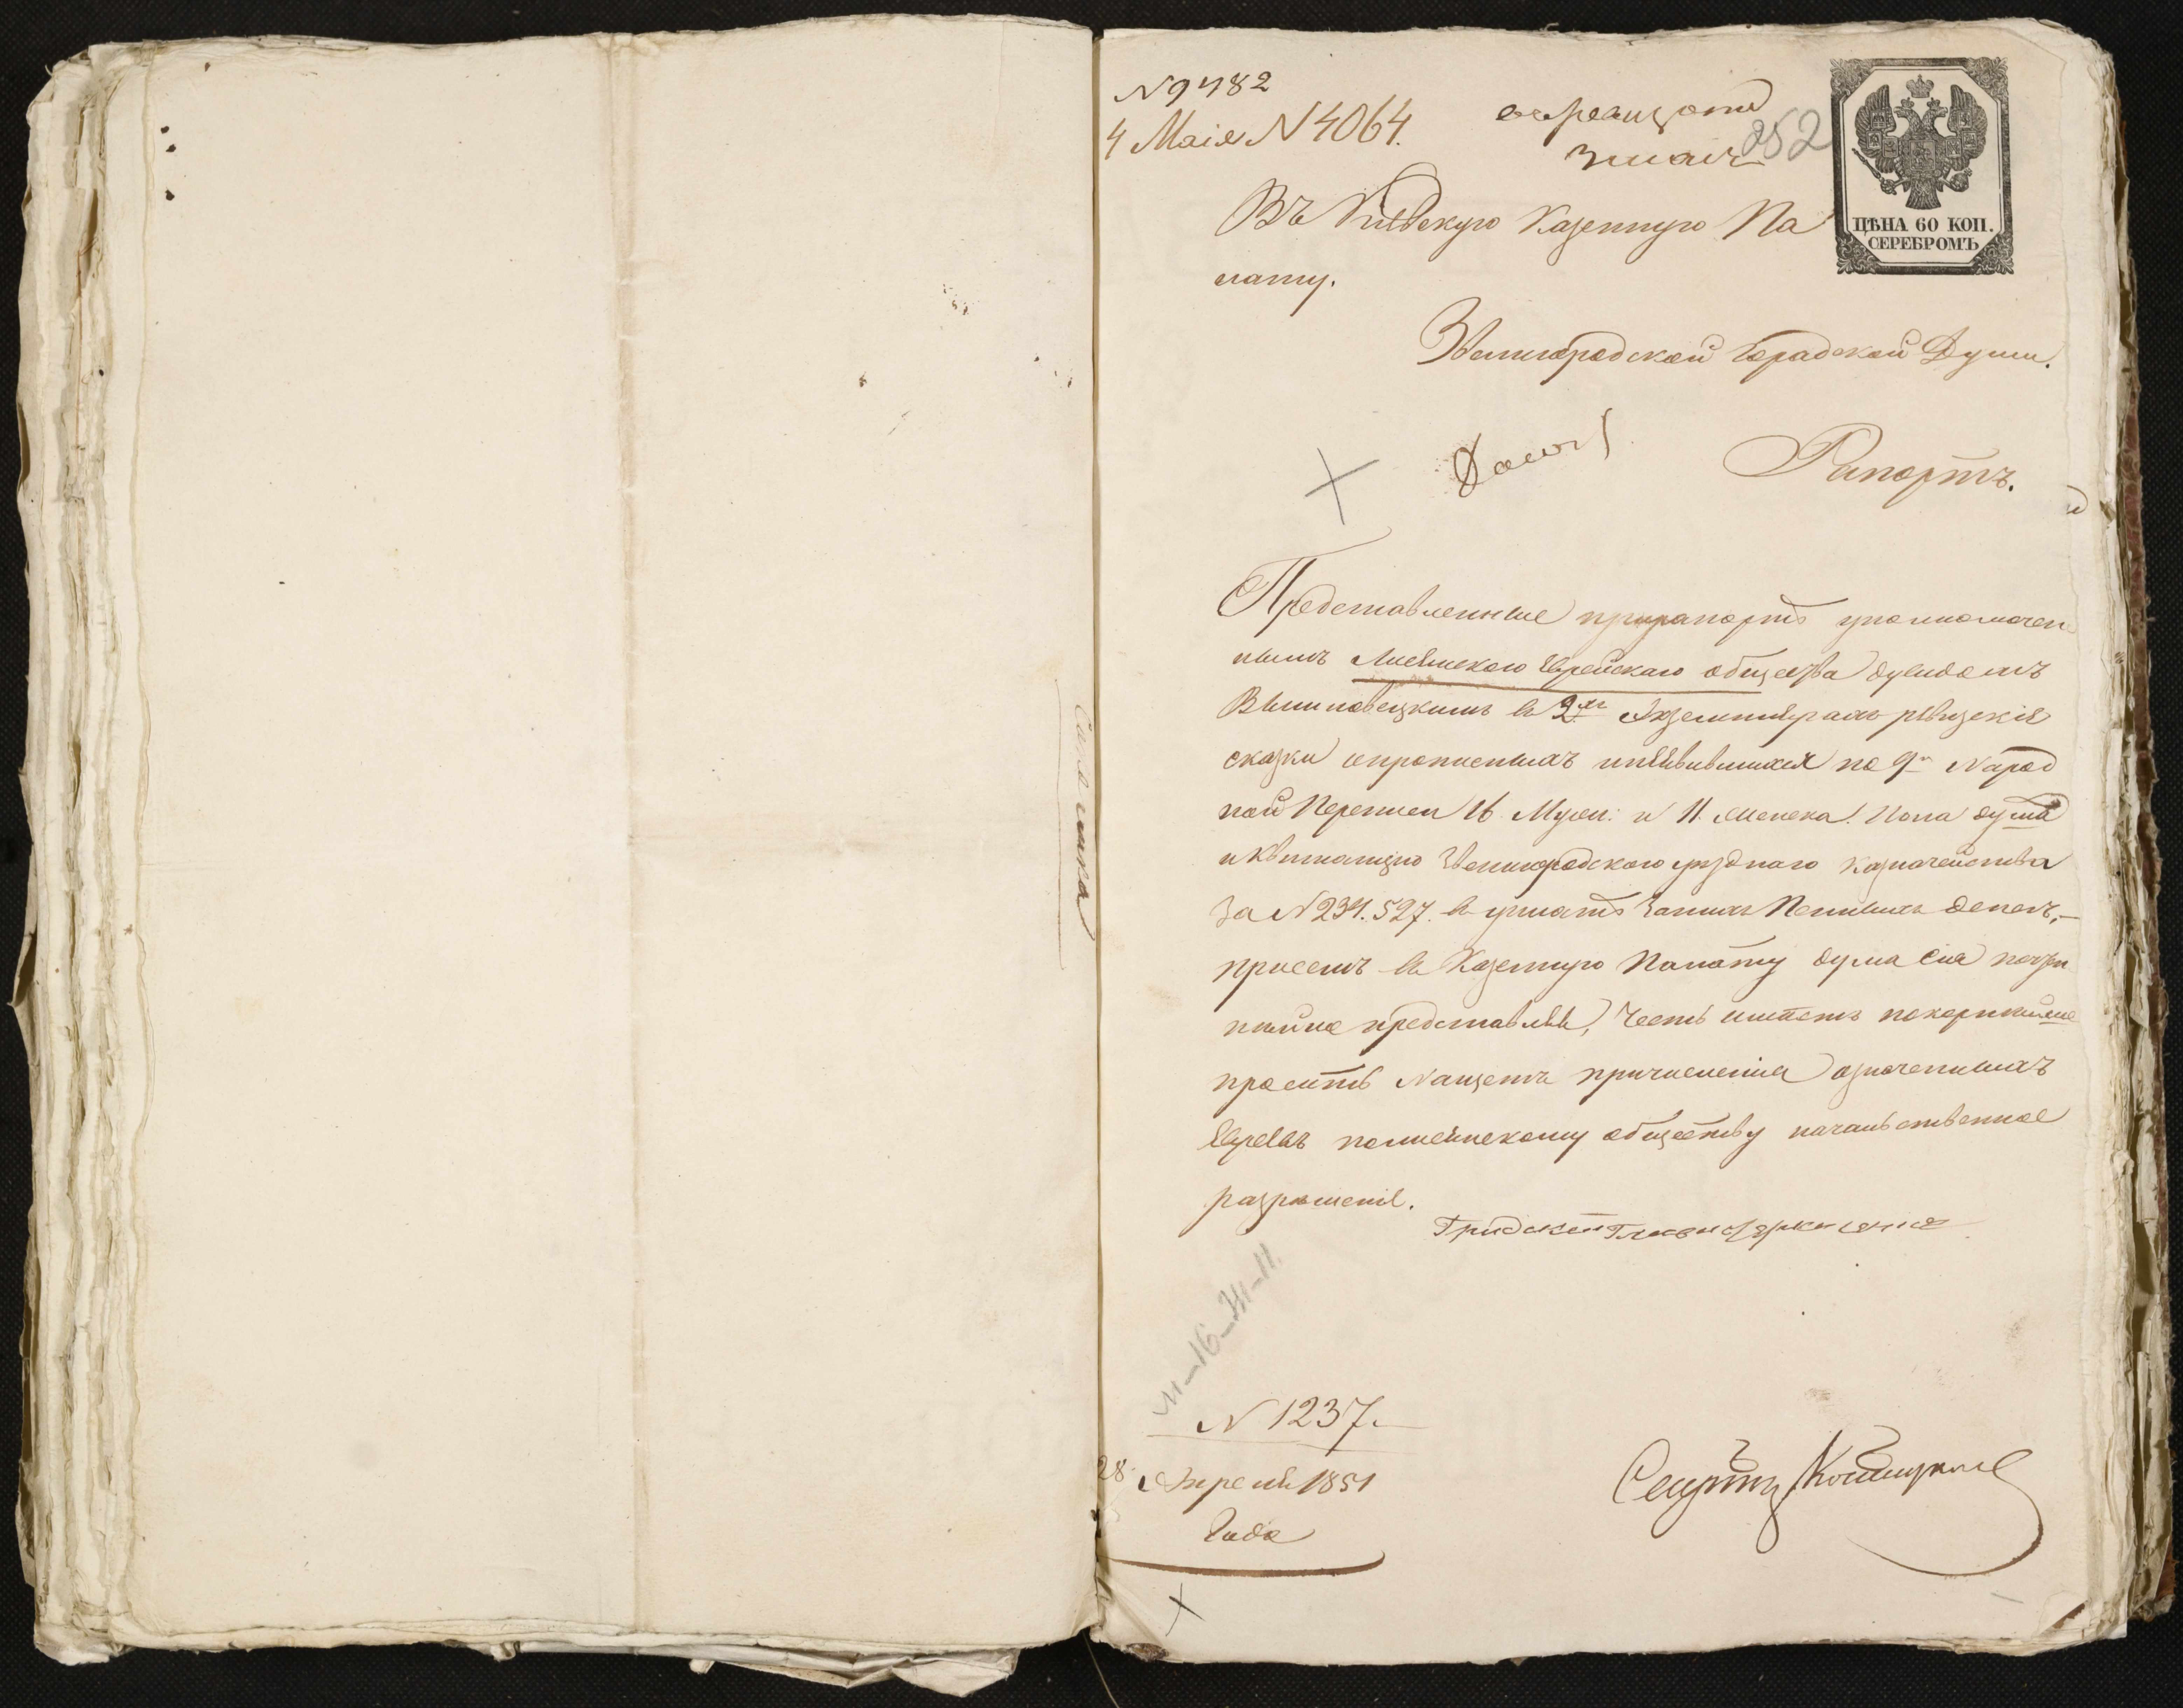 N 9782
4 Маія N 4064.
252
ЦѢНА 60 КОП.
СЕРЕБРОМЪ
Въ Кіевскую Казенную Па
лату.
Звенигородской Городской Думы.
Рапортъ.
Представленные прирапортѣ уполномочен
нымъ Лисянскаго Еврейскаго общества Дувидомъ
Вишновецкимъ въ 2хъ Экземплярахъ ревизскія
сказки опрописныхъ неявившихся по 9й Народ
ной Переписи 16 Муж: и 11. женска. Пола душа
и квитанцію Звенигородского уезднаго Казначейства
За N 234. 527. въ уплатѣ Заних Пенныхъ Денегъ,—
присемъ въ Казенную Палату дума Сія
представляя, Честь имѣетъ покорнейше
просить Нащетъ причисленія означенныхъ
Евреевъ полисянскому обществу начальственное
разрешеніе.
Градской Глава
М—16—Ж—11.
N 1237.
28 Апреля 1851
Года
Секретарь